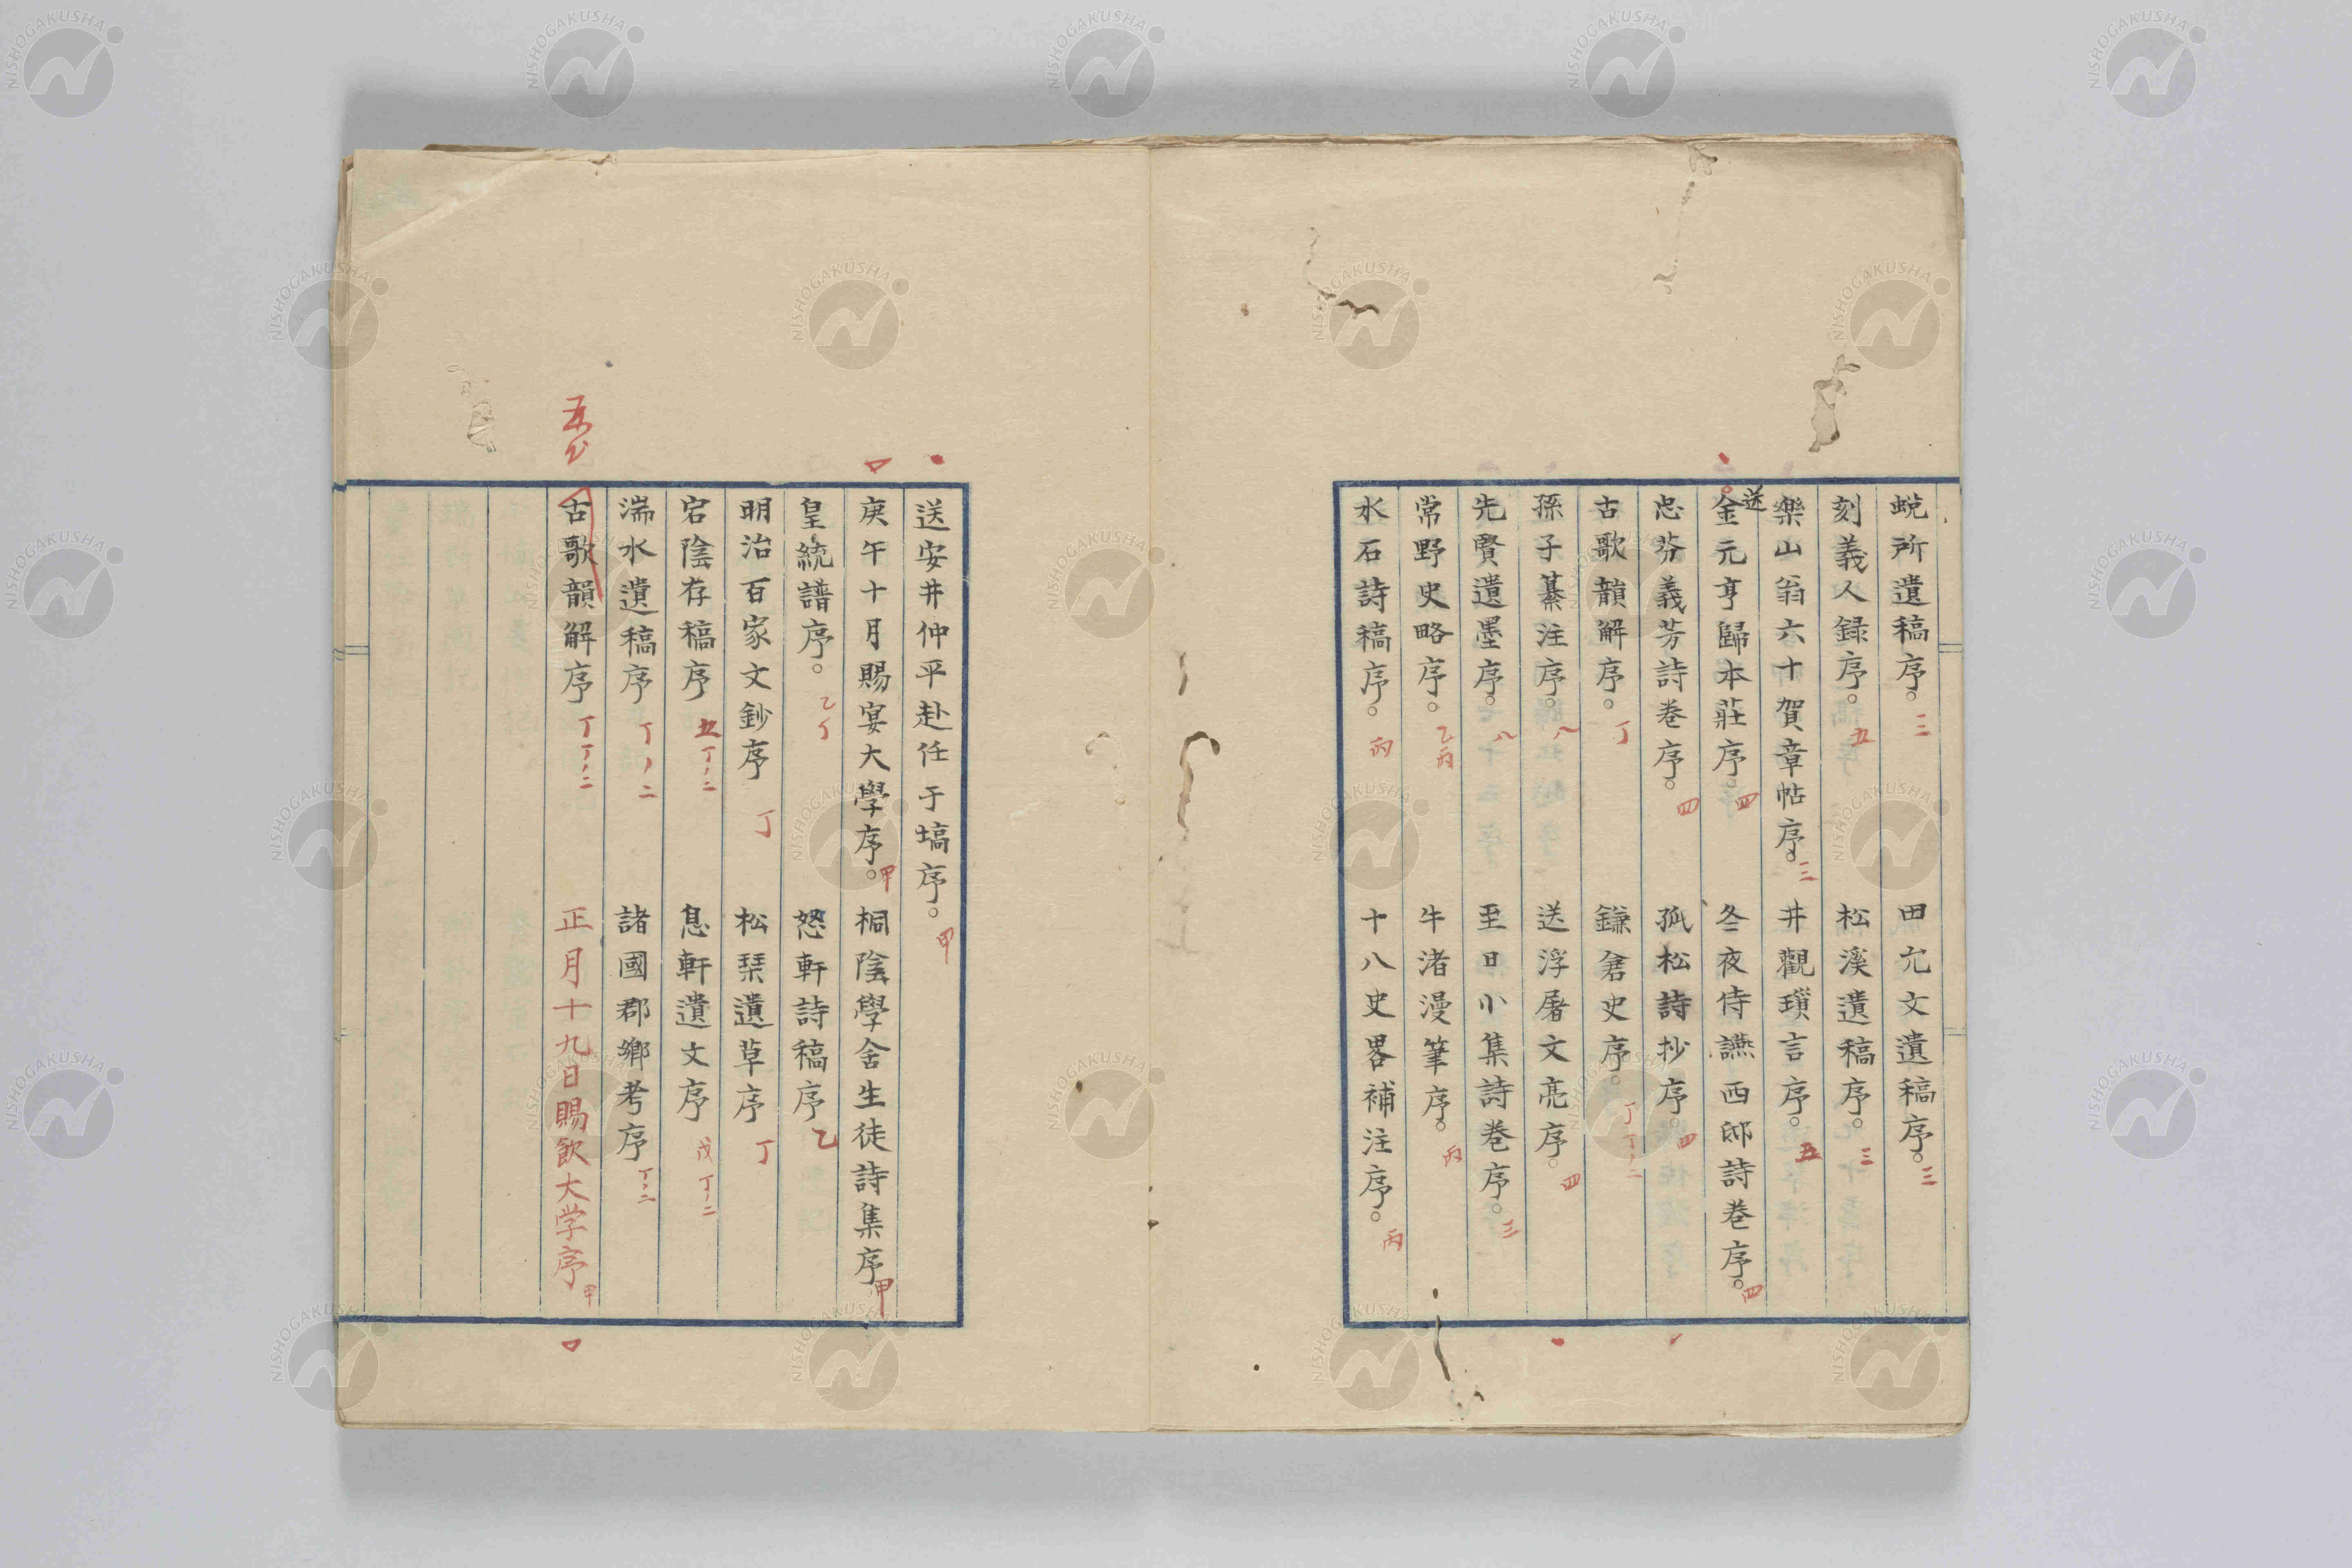 蛻所遺稿序。三 田允文遺稿序。三
刻義人録序。五 松溪遺稿序。三
樂山翁六十賀章帖序。三 井觀瑣言序。五
送金元亨歸本莊序。四 冬夜侍讌西邸詩巻序。四
忠芬義芳詩巻序。四 孤松詩抄序。四
古歌韻解序。丁 鎌倉史序。丁丁ノ二
孫子纂注序。八 送浮屠文亮序。四
先賢遺墨序。八 至日小集詩巻序。三
常野史略序。乙丙 牛渚漫筆序。丙
水石詩稿序。丙 十八史畧補注序。丙
送安井仲平赴任于塙序。甲
庚午十月賜宴大學序。甲 桐陰學舍生徒詩集序甲
皇統譜序。乙丁 怒軒詩稿序乙
明治百家文鈔序丁 松琹遺草序丁
宕陰存稿序五丁ノ二 息軒遺文序戊丁ノ二
湍水遺稿序丁ノ二 諸國郡鄉考序丁ノ二
古歌韻解序丁丁ノ二 正月十九日賜飲大学序甲
NISHOGAKUSHA